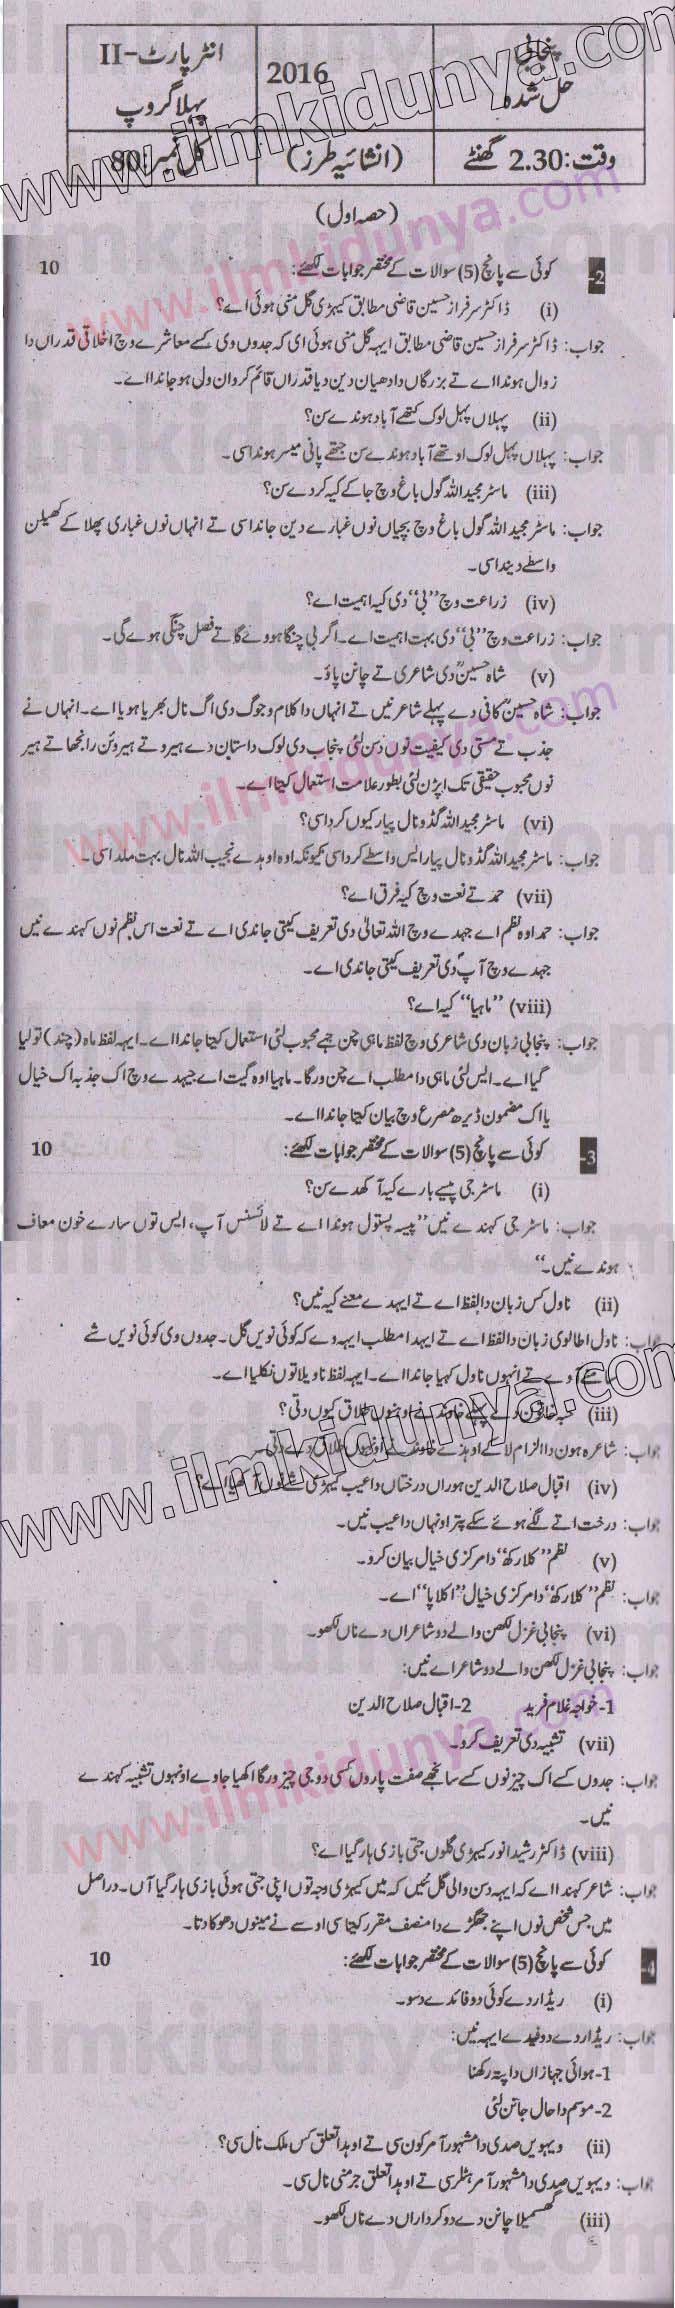 پنجابی
حل شدہ
2016
انٹر پارٹ-II
پہلا گروپ
وقت: 2.30 گھنٹے
(انشائیہ طرز)
کل نمبر: 80
(حصہ اول)
2- کوئی سے پانچ (5) سوالات کے مختصر جوابات لکھئے: 10
(i) ڈاکٹر سرفراز حسین قاضی مطابق کیہڑی گل منی ہوئی اے؟
جواب: ڈاکٹر سرفراز حسین قاضی مطابق ایہہ گل منی ہوئی ای کہ جدوں وی کسے معاشرے وچ اخلاقی قدراں دا
زوال ہوندا اے تے بزرگاں دا دھیان دین دیا قدراں قائم کردان ولی ہو جاندا اے۔
(ii) پہلاں پہل لوک کتھے آباد ہوندے سن؟
جواب: پہلاں پہل لوک اوتھے آباد ہوندے سن جتھے پانی میسر ہوندا سی۔
(iii) ماسٹر مجید اللہ گول باغ وچ جا کے کیہ کردے سن؟
جواب: ماسٹر مجید اللہ گول باغ وچ بچیاں نوں غبارے دین جاندا سی تے انہاں نوں غباری پھلا کے کھیلن
واسطے دیندا سی۔
(iv) زراعت وچ ”بی“ دی کیہ اہمیت اے؟
جواب: زراعت وچ ”بی“ دی بہت اہمیت اے۔ اگر بی چنگا ہووے گا تے فصل چنگی ہوے گی۔
(v) شاہ حسینؒ دی شاعری تے چانن پاؤ۔
جواب: شاہ حسینؒ کافی دے پہلے شاعر نیں تے انہاں دا کلام وجوگ دی اگ نال بھریا ہویا اے۔ انہاں نے
جذب تے مستی دی کیفیت نوں دسن لئی پنجاب دی لوک داستان دے ہیرو تے ہیروئن رانجھا تے ہیر
نوں محبوب حقیقی تک اپڑن لئی بطور علامت استعمال کیتا اے۔
(vi) ماسٹر مجید اللہ گڈو نال پیار کیوں کردا سی؟
جواب: ماسٹر مجید اللہ گڈو نال پیار ایس واسطے کردا سی کیونکہ اوہ اوہدے نجیب اللہ نال بہت ملدا سی۔
(vii) حمد تے نعت وچ کیہ فرق اے؟
جواب: حمد اوہ نظم اے جہدے وچ اللہ تعالیٰ دی تعریف کیتی جاندی اے تے نعت اس نظم نوں کہندے نیں
جہدے وچ آپؐ دی تعریف کیتی جاندی اے۔
(viii) ”ماہیا“ کیہ اے؟
جواب: پنجابی زبان دی شاعری وچ لفظ ماہی چن جہے محبوب لئی استعمال کیتا جاندا اے۔ ایہہ لفظ ماہ (چند) تو لیا
گیا اے۔ ایس لئی ماہی دا مطلب اے چن ورگا۔ ماہیا اوہ گیت اے جیہدے وچ اک جذبہ اک خیال
یا اک مضمون ڈیرھ مصرع وچ بیان کیتا جاندا اے۔
3- کوئی سے پانچ (5) سوالات کے مختصر جوابات لکھئے: 10
(i) ماسٹر جی پیسے بارے کیہ آکھدے سن؟
جواب: ماسٹر جی کہندے نیں ”پیسہ پستول ہوندا اے تے لائسنس آپ، ایس توں سارے خون معاف
ہوندے نیں۔“
(ii) ناول کس زبان دا لفظ اے تے ایہدے معنے کیہ نیں؟
جواب: ناول اطالوی زبان دا لفظ اے تے ایہدا مطلب ایہہ وے کہ کوئی نویں گل۔ جدوں وی کوئی نویں شے
سامنے آوے تے انہوں ناول کہیا جاندا اے۔ ایہہ لفظ ناویلا توں نکلیا اے۔
(iii) خاتون دے پہلے خاوند نے اوہنوں طلاق کیوں دتی؟
جواب: شاعرہ ہون دا الزام لا کے اوہدے خاوند نے اوہنوں طلاق دے دتی۔
(iv) اقبال صلاح الدین ہوراں درختاں دا عیب کیہڑی شے نوں آکھیا اے؟
جواب: درخت اتے لگے ہوئے سکے پتر اونہاں دا عیب نیں۔
(v) نظم ”کلا رکھ“ دا مرکزی خیال بیان کرو۔
جواب: نظم ”کلا رکھ“ دا مرکزی خیال ”اکلاپا“ اے۔
(vi) پنجابی غزل لکھن والے دو شاعراں دے ناں لکھو۔
جواب: پنجابی غزل لکھن والے دو شاعر اے نیں:
1- خواجہ غلام فرید 2- اقبال صلاح الدین
(vii) تشبیہ دی تعریف کرو۔
جواب: جدوں کسے اک چیز نوں کسے سانجھے صفت پاروں کسی دوجی چیز ورگا اکھیا جاوے اونہوں تشبیہ کہندے
نیں۔
(viii) ڈاکٹر رشید انور کیہڑی گلوں جتی بازی ہار گیا اے؟
جواب: شاعر کہندا اے کہ ایہہ دسن والی گل نئیں کہ میں کیہڑی وجہ توں اپنی جتی ہوئی بازی ہار گیا آں۔ دراصل
میں جس شخص نوں اپنے جھگڑے دا منصف مقرر کیتا سی اوسے نے مینوں دھوکا دتا۔
4- کوئی سے پانچ (5) سوالات کے مختصر جوابات لکھئے: 10
(i) ریڈار دے کوئی دو فائدے دسو۔
جواب: ریڈار دے دو فیدے ایہہ نیں:
1- ہوائی جہازاں دا پتہ رکھنا
2- موسم دا حال جانن لئی
(ii) ویہویں صدی دا مشہور آمر کون سی تے اوہدا تعلق کس ملک نال سی؟
جواب: ویہویں صدی دا مشہور آمر ہٹلر سی تے اوہدا تعلق جرمنی نال سی۔
(iii) گھسمیلا چانن دے دو کرداراں دے ناں لکھو۔
www.ilmkidunya.com